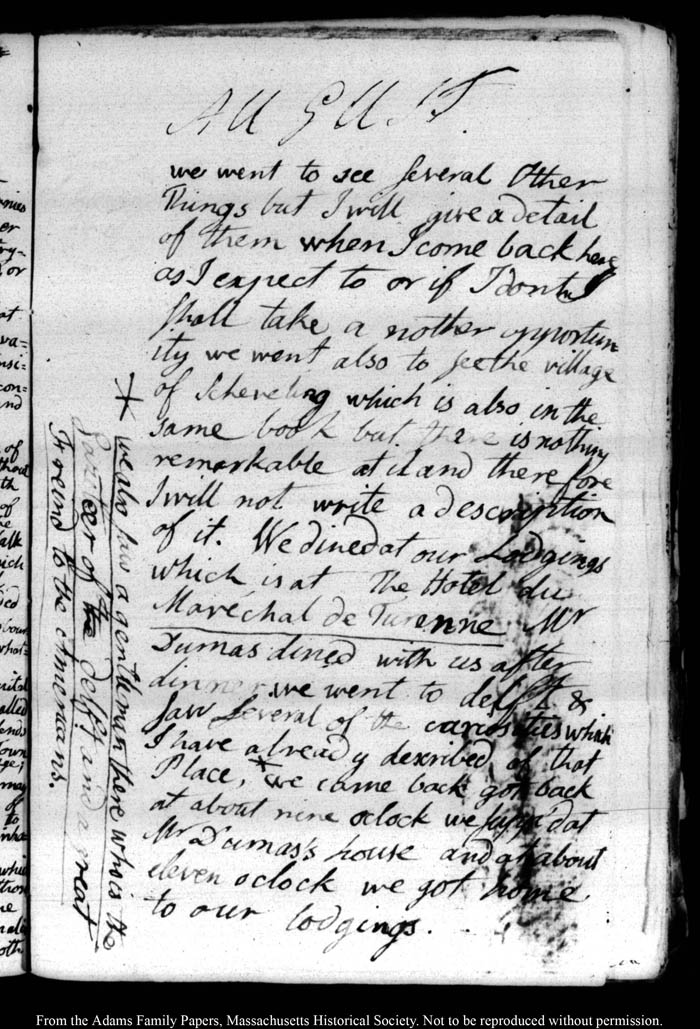 AUGUST.
we went to see several Other
Things but I will give a detail
of them when I come back here
as I expect to or if I dont I
shall take a nother opportun
ity we went also to see the village
of Scheveling which is also in the
same book but there is nothing
remarkable at it and therefore
I will not write a description
of it. We dined at our Lodgings
which is at The Hotel du
Maréchal de Turenne Mr
Dumas dined with us after
dinner we went to delft &
saw several of the curiosities which
I have already described of that
Place, * we came back got back
at about nine oclock we supp'd at
Mr Dumas's house and at about
eleven oclock we got home
to our lodgings.
* we also saw a gentleman there who is the
of the delft and a great
Freind to the Americans.
From the Adams Family Papers, Massachusetts Historical Society. Not to be reproduced without permission.